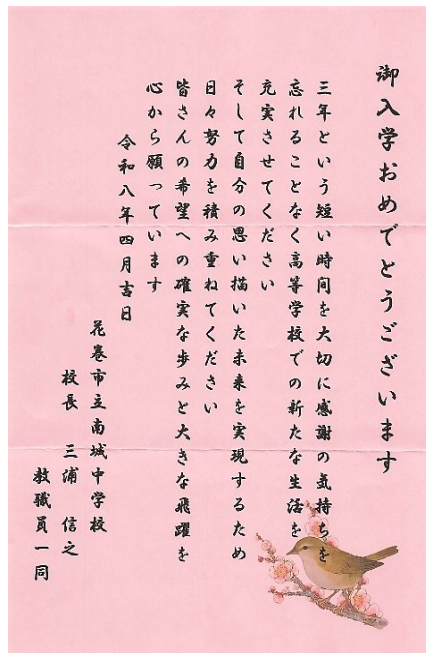 御入学おめでとうございます
三年という短い時間を大切に感謝の気持ちを
忘れることなく高等学校での新たな生活を
充実させてください
そして自分の思い描いた未来を実現するため
日々努力を積み重ねてください
皆さんの希望への確実な歩みと大きな飛躍を
心から願っています
令和八年四月吉日
花巻市立南城中学校
校長 三浦 信之
教職員一同